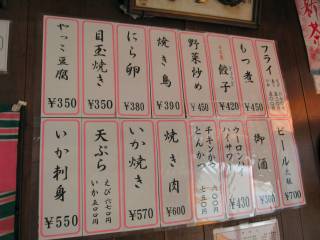 ビール 大瓶 ¥700
フライ
もつ煮 ¥420
餃子 ¥420
野菜炒め ¥450
焼き鳥 ¥390
にら卵 ¥380
目玉焼き ¥350
やっこ豆腐 ¥350
御酒 ¥300
ウーロンハイ
サワー ¥430
チキンかつ 六〇〇
とんかつ 七五〇
焼き肉 ¥600
いか焼き ¥570
天ぷら えび 六七〇円
いか 五〇〇円
いか刺身 ¥550